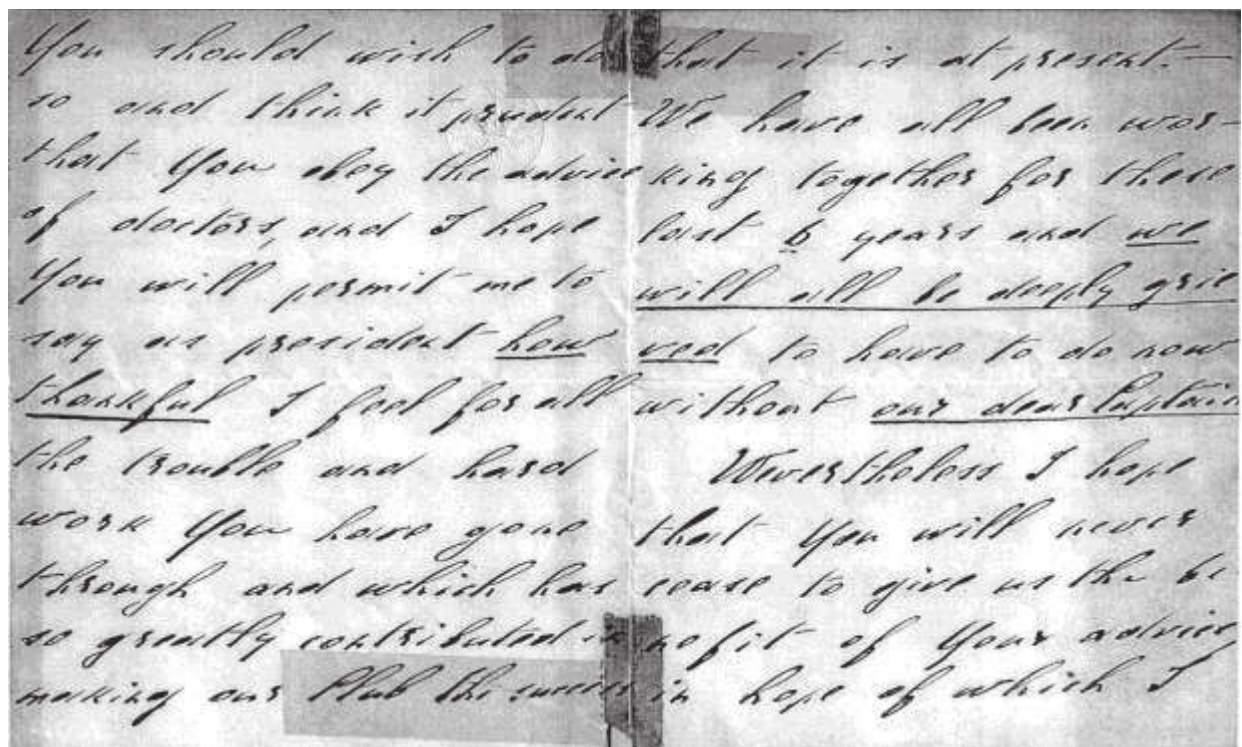 You should wish to do
so and think it prudent
that You obey the advice
of doctors, and I hope
You will permit me to
say as president how
thankful I feel for all
the trouble and hard
work You have gone
through and which has
so greatly contributed in
making our Club the success
that it is at present.—
We have all been wor-
king together for these
last 6 years and we
will all be deeply grie
ved to have to do now
without our dear Captain
Nevertheless I hope
that You will never
cease to give us the be
nefit of Your advice
in hope of which I